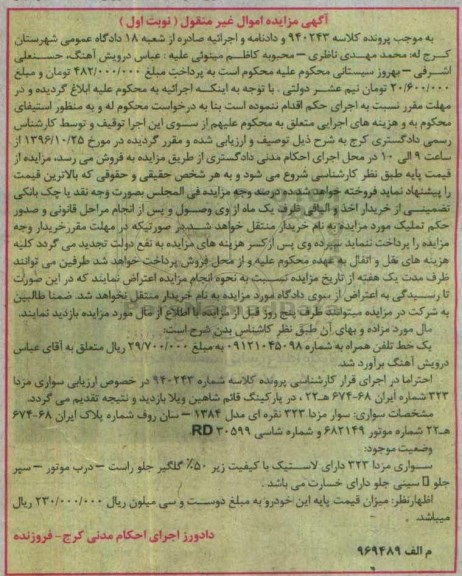 آگهی مزایده اموال غیر منقول ( نوبت اول )
به موجب پرونده کلاسه ۹۴۰۲۴۳ و دادنامه و اجرائیه صادره از شعبه ۱۸ دادگاه عمومی شهرستان
کرج له: محمد مهدی ناظری – محبوبه کاظم میتوئی علیه : عباس درویش آهنگ، حسنعلی
اشرفی – بهروز سیستانی محکوم علیه محکوم است به پرداخت مبلغ ۴۸۲/۰۰۰/۰۰۰ تومان و مبلغ
۲۰/۶۰۰/۰۰۰ تومان نیم عشر دولتی . با توجه به اینکه اجرائیه به محکوم علیه ابلاغ گردیده و در
مهلت مقرر نسبت به اجرای حکم اقدام ننموده است بنا به درخواست محکوم له و به منظور استیفای
محکوم به و هزینه های اجرایی متعلق به محکوم علیهم از سوی این اجرا توقیف و توسط کارشناس
رسمی دادگستری کرج به شرح ذیل توصیف و ارزیابی شده و مقرر گردیده در مورخ ۱۳۹۶/۱۰/۲۵ از
ساعت ۹ الی ۱۰ در محل اجرای احکام مدنی دادگستری از طریق مزایده به فروش می رسد، مزایده از
قیمت پایه طبق نظر کارشناسی شروع می شود و به هر شخص حقیقی و حقوقی که بالاترین قیمت
را پیشنهاد نماید فروخته خواهد شد ده درصد وجه مزایده فی المجلس بصورت وجه نقد یا چک بانکی
تضمینی از خریدار اخذ و الباقی ظرف یک ماه از وی وصول و پس از انجام مراحل قانونی و صدور
حکم تملیک مورد مزایده به نام خریدار منتقل خواهد شد در صورتیکه در مهلت مقرر خریدار وجه
مزایده را پرداخت ننماید سپرده وی پس از کسر هزینه های مزایده به نفع دولت تجدید می گردد کلیه
هزینه های نقل و انتقال به عهده محکوم علیه و از محل فروش پرداخت خواهد شد طرفین می توانند
ظرف مدت یک هفته از تاریخ مزایده نسبت به نحوه انجام مزایده اعتراض نمایند که در این صورت
تا رسیدگی به اعتراض از سوی دادگاه مورد مزایده به نام خریدار منتقل نخواهد شد. ضمنا طالبین
به شرکت در مزایده میتوانند ظرف پنج روز قبل از مزایده با اطلاع از مال مورد مزایده بازدید نمایند.
مال مورد مزاده و بهای آن طبق نظر کاشناس بدن شرح است:
یک خط تلفن همراه به شماره ۰۹۱۲۱۰۴۵۰۹۸ به مبلغ ۲۹/۷۰۰/۰۰۰ ریال متعلق به آقای عباس
درویش آهنگ برآورد شد.
احتراما در اجرای قرار کارشناسی پرونده کلاسه شماره ۹۴۰۲۴۳ در خصوص ارزیابی سواری مزدا
۳۲۳ شماره ایران ۶۸-۶۷۴ هـ۲۲ ، در پارکینگ قائم شاهین ویلا بازدید و نتیجه تقدیم می گردد.
مشخصات سواری: سوار مزدا ۳۲۳ نقره ای مدل ۱۳۸۴ – سان روف شماره پلاک ایران ۶۸-۶۷۴
هـ۲۲ شماره موتور ۶۸۲۱۴۹ و شماره شاسی RD ۳۰۵۹۹
وضعیت موجود:
سواری مزدا ۳۲۳ دارای لاستیک با کیفیت زیر ۵۰٪ گلگیر جلو راست – درب موتور – سپر
جلو سینی جلو دارای خسارت می باشد .
اظهارنظر: میزان قیمت پایه این خودرو به مبلغ دوست و سی میلون ریال ۲۳۰/۰۰۰/۰۰۰ ریال
میباشد.
دادورز اجرای احکام مدنی کرج- فروزنده
م الف ۹۶۹۴۸۹